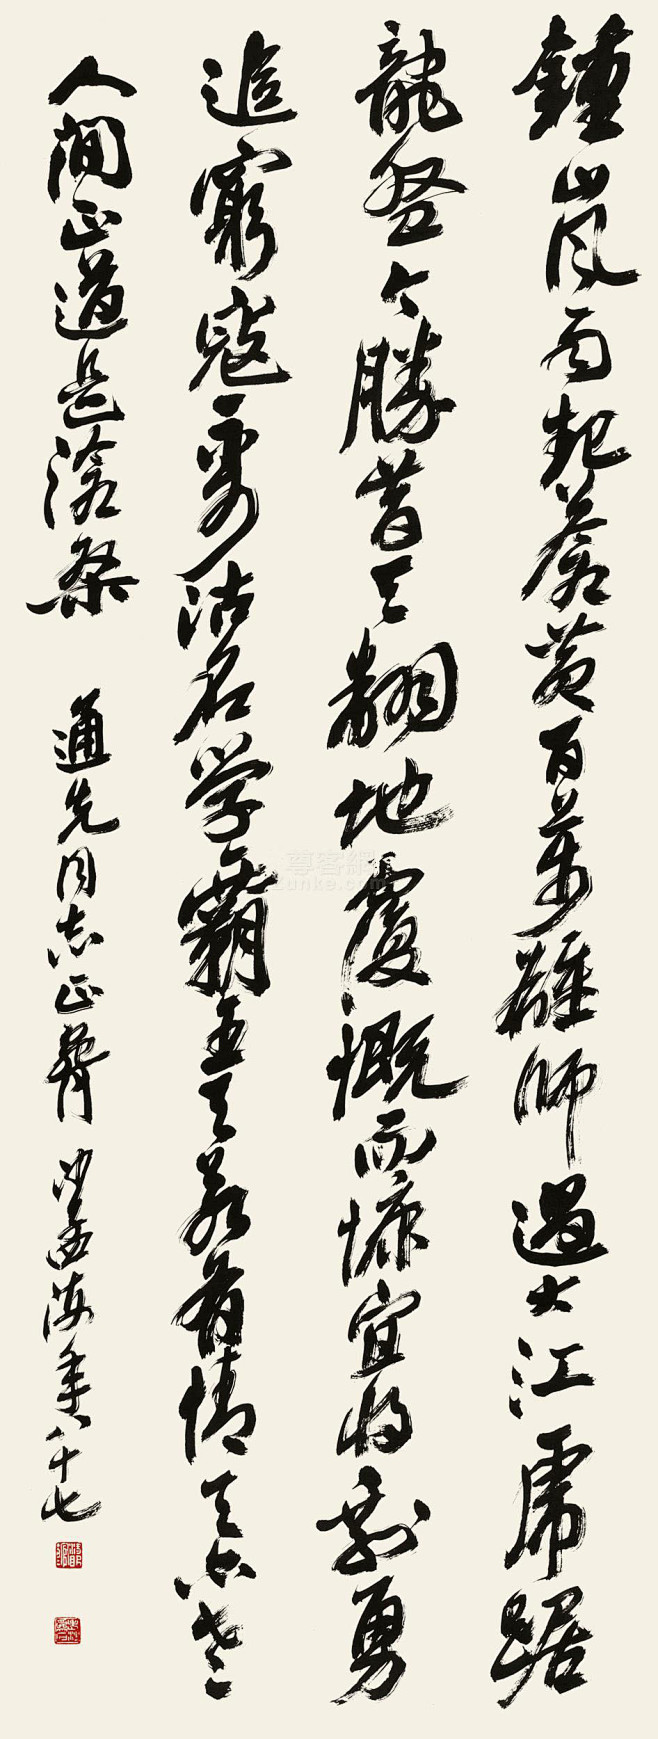 鍾山风雨起蒼黄百萬雄師過大江虎踞
龍盘今勝昔天翻地覆慨而慷宜将剩勇
追窮寇不可沽名学霸王天若有情天亦老
人間正道是滄桑
通先同志正臂 沙孟海年八十七
尊客網
Zunke.com